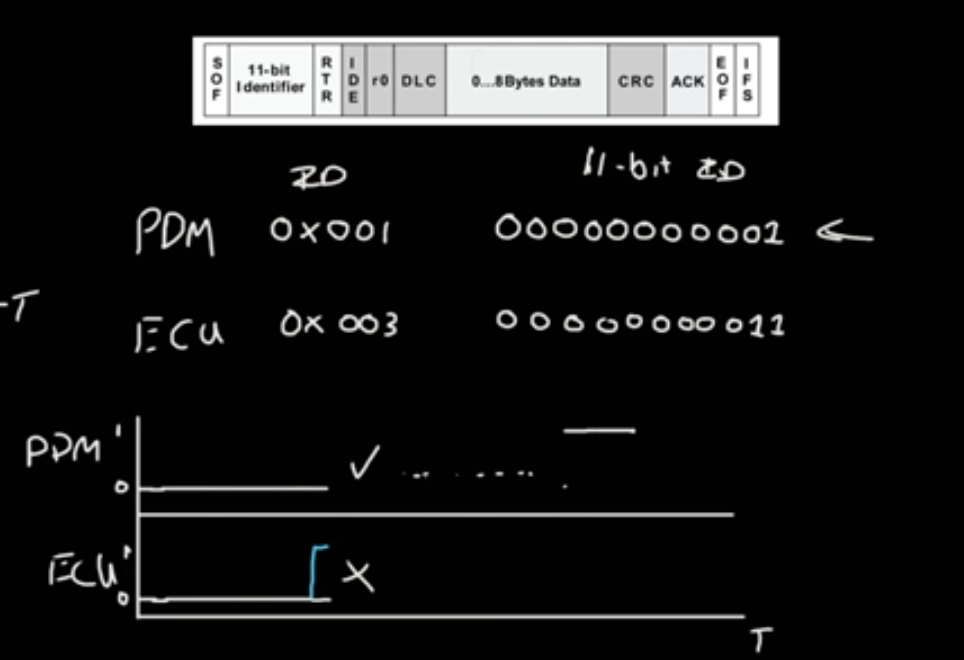 SOF 11-bit Identifier RTR IDE r0 DLC 0...8Bytes Data CRC ACK EOF IFS
ID 11-bit ID
PDM 0x001 00000000001
-T
ECU 0x003 00000000011
PDM 1
0
ECU 1
0
T